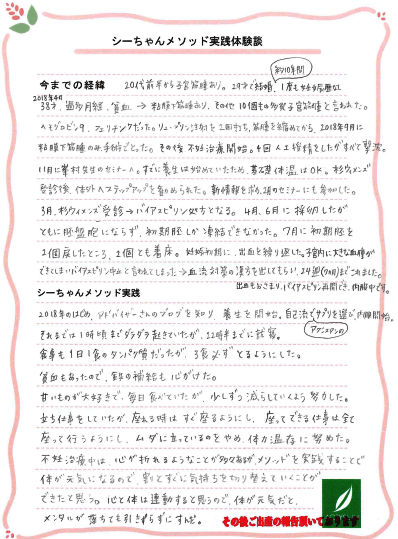 シーちゃんメソッド実践体験談
約10年間
今までの経緯 20代前半から子宮筋腫あり。29才で結婚、1度も妊娠歴なし
2018年4月
38才、過多月経、貧血 → 粘膜下筋腫あり、その他10個もの多発子宮筋腫と言われた。
ヘモグロビン、フェリチン だった。リュープリン注射を2回打ち、筋腫を縮めてから、2018年9月に
粘膜下筋腫のみ、手術でとった。その後不妊治療開始。4回人工授精をしたがすべて撃沈。
11月に 村先生のセミナーへ。すでに養生は始めていたため、基礎体温はOK。杉ウィメンズ
受診後、体外へステップアップを勧められた。新情報を求め、2月のセミナーにも参加した。
3月、杉ウィメンズ受診→バイアスピリン処方となる。4月、6月に採卵したが
ともに胚盤胞にならず、初期胚しか凍結できなかった。7月に初期胚を
2個戻したところ、2個とも着床。妊娠初期に、出血を繰り返した。子宮内に大きな血腫が
できてしまいバイアスピリン中止と言われてしまった→血流対策の漢方を出してもらい、24週(7M)まできました。
出血もおさまり、バイアスピリン再開でき、内服中です。
シーちゃんメソッド実践
2018年のはじめ、シドバイザーさんのブログを知り、養生を開始。自己流でサプリを選び、内服開始。
アドバイザーの
それまでは1時頃までダラダラ起きていたが、22時半までに就寝。
食事も1日1食のタンパク質だったが、3食必ずとるようにした。
貧血もあったので、鉄の補給も心がけた。
甘いものが大好きで、毎日食べていたが、少しずつ減らしていくよう努力した。
立ち仕事をしていたが、座れる時はすぐ座るようにし、座ってできる仕事は全て
座って行うようにし、ムダに立っているのをやめ、体力温存に努めた。
不妊治療中は、心が折れるようなことが多々あるが、メソッドを実践することで
体が元気になるので、割とすぐに気持ちを切り替えていくことが
できたと思う。心と体は連動すると思うので、体が元気だと、
メンタルが落ちても引きずらずにすんだ。
その後ご出産の報告頂いております